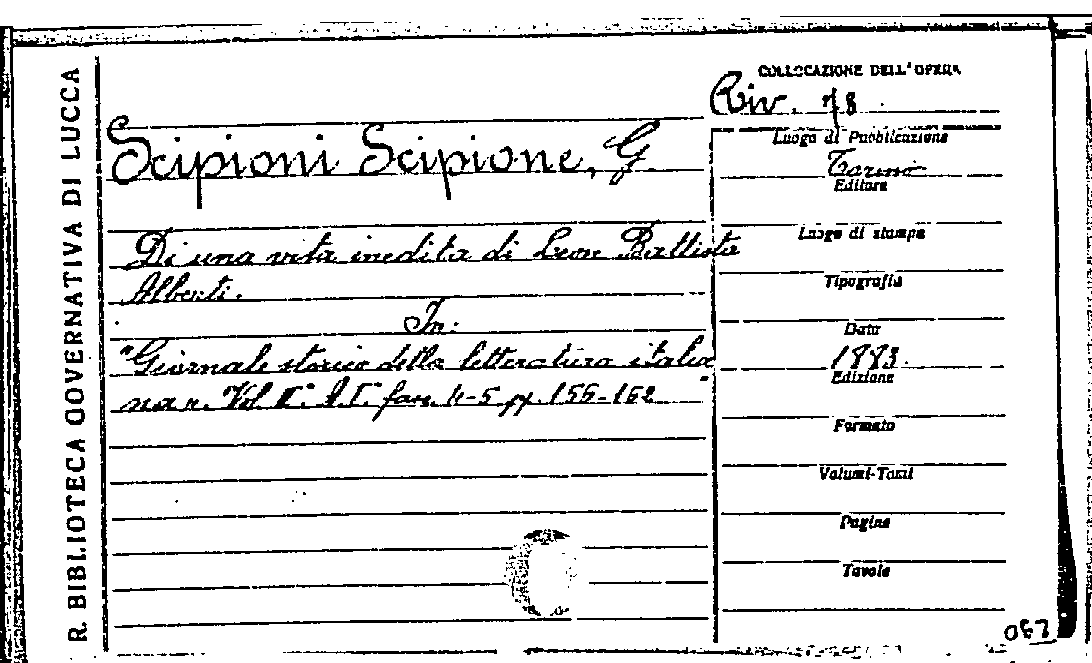 R. BIBLIOTECA GOVERNATIVA DI LUCCA
COLLOCAZIONE DELL'OPERA
Riv. 78
Scipioni Scipione, G
Luogo di Pubblicazione
Torino
Editore
Di una vita inedita di Leon Battista
Alberti.
Luogo di stampa
Tipografia
In:
"Giornale storico della letteratura italia
na". Vol. fasc. 4-5 pp. 156-162
Data
1883.
Edizione
Formato
Volumi-Tomi
Pagine
Tavole